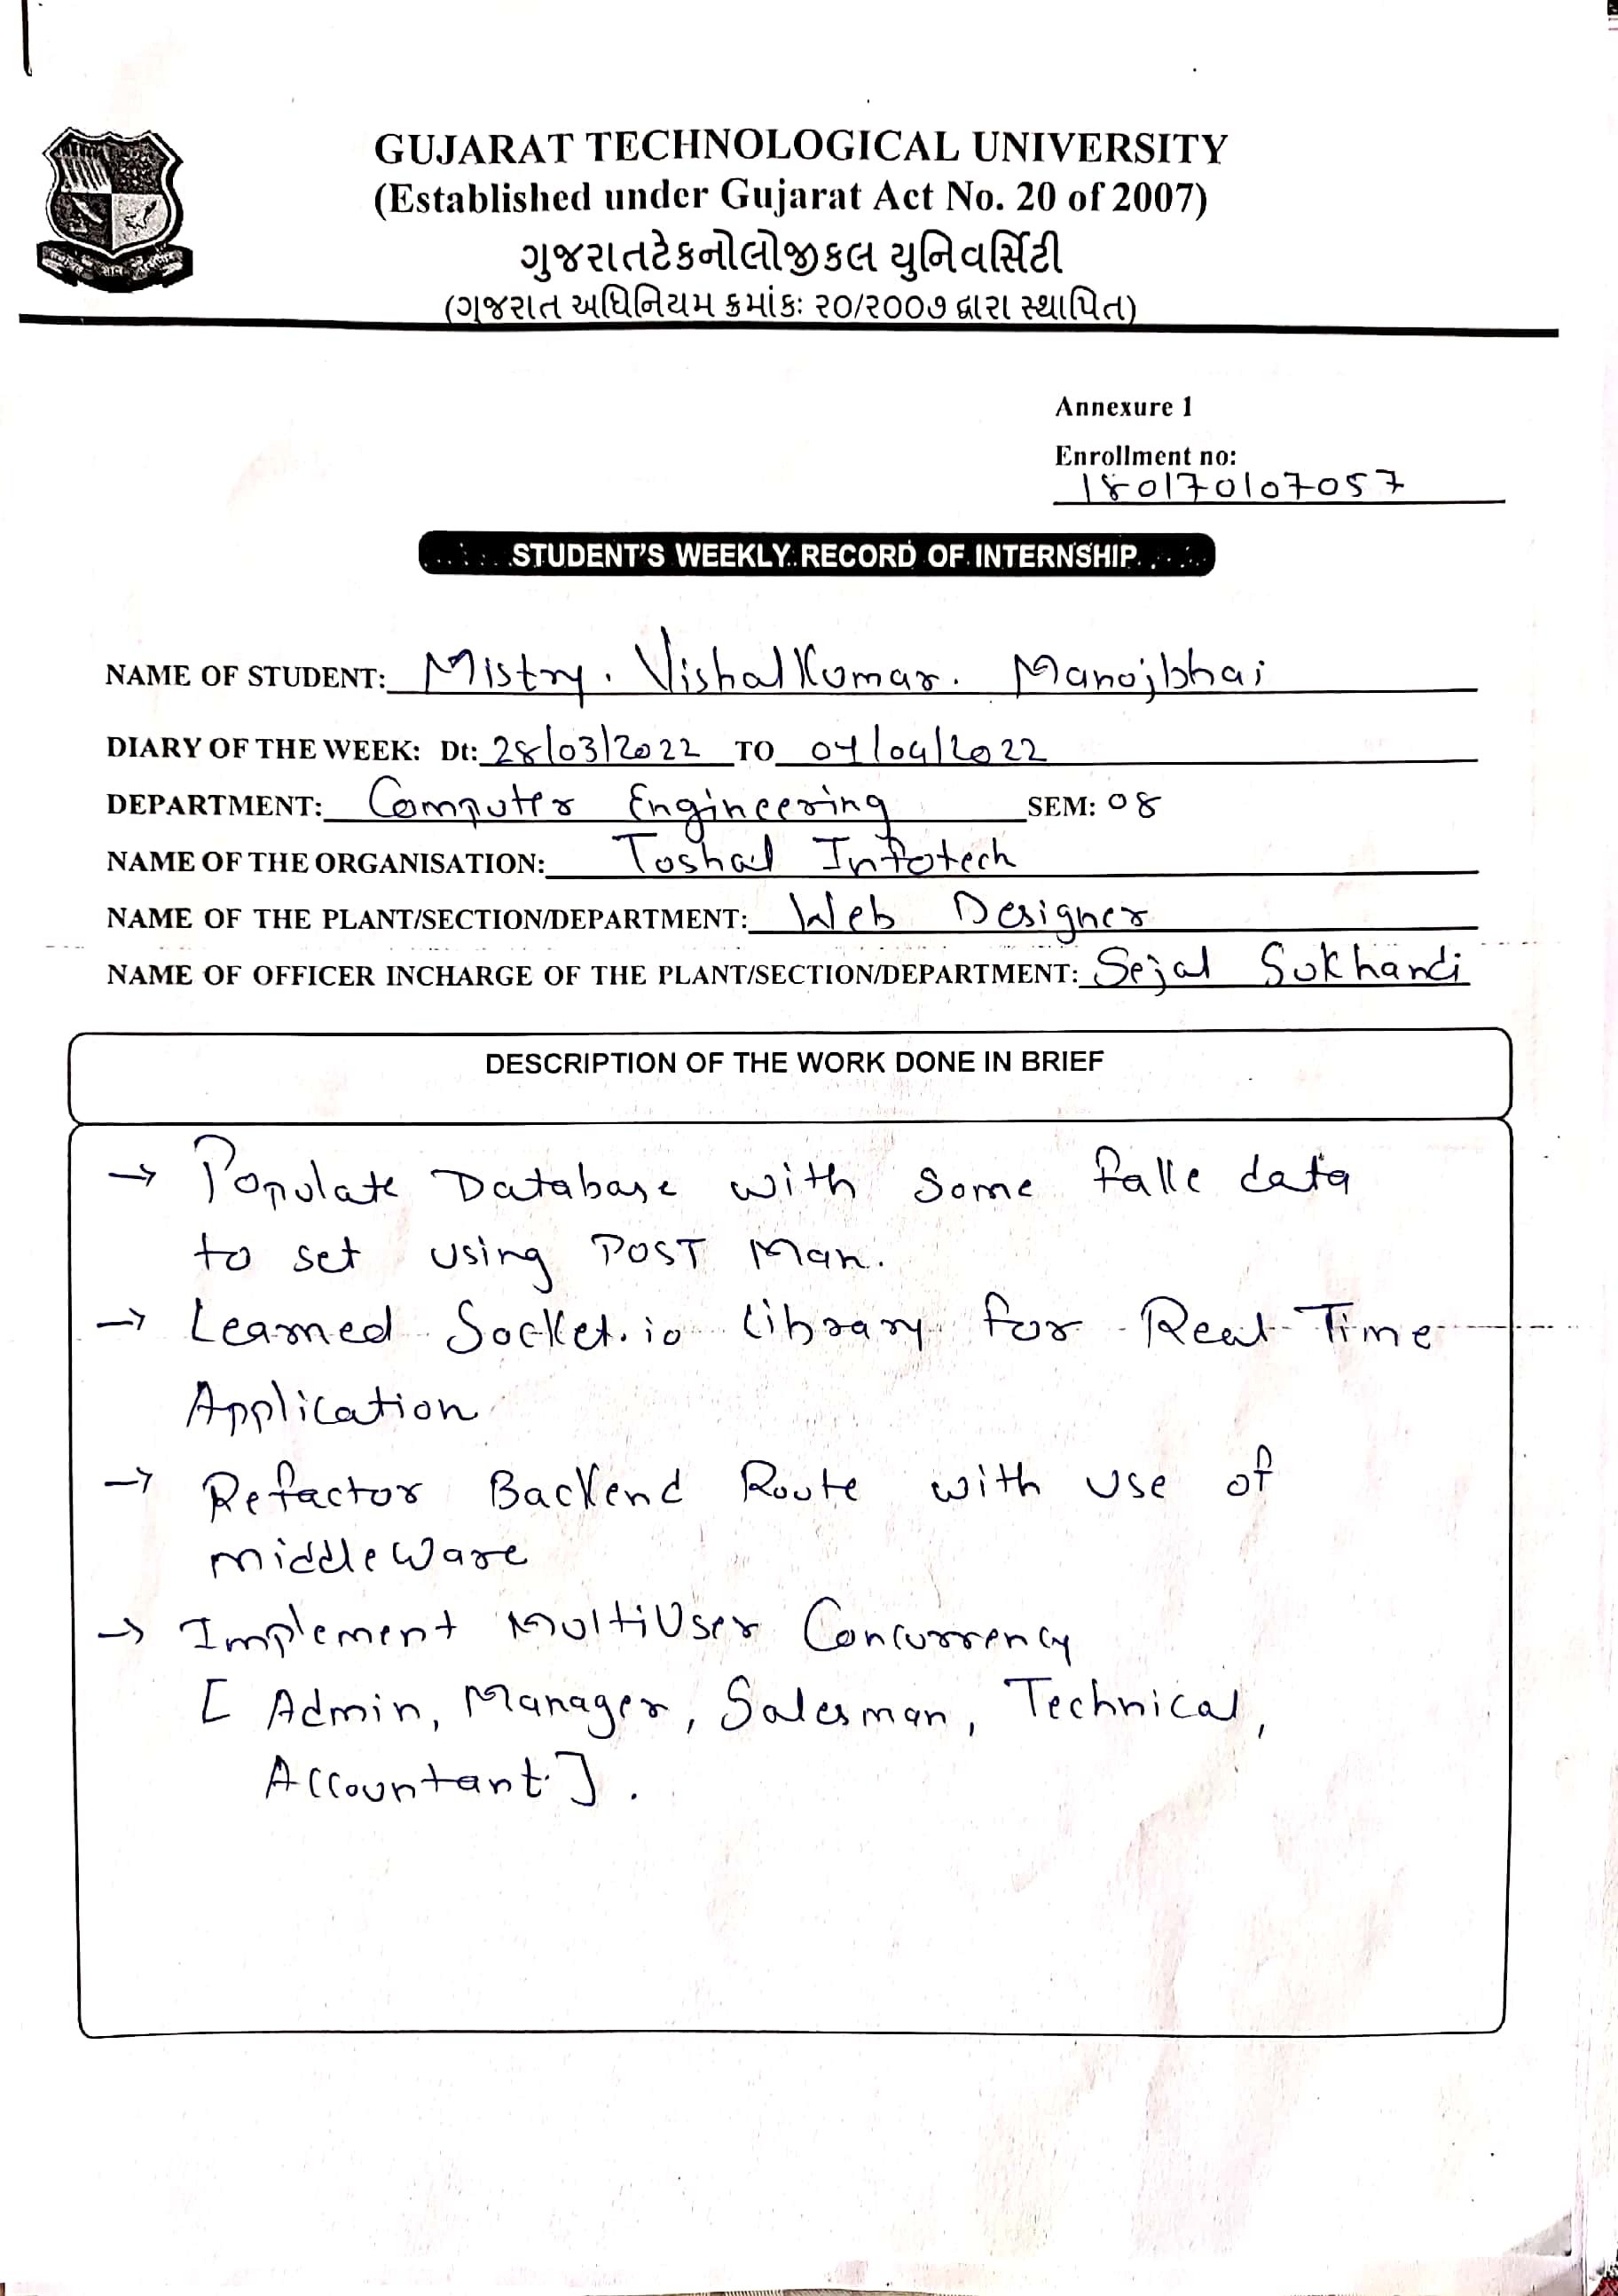 GUJARAT TECHNOLOGICAL UNIVERSITY
(Established under Gujarat Act No. 20 of 2007)
ગુજરાતટેકનોલોજીકલ યુનિવર્સિટી
(ગુજરાત અધિનિયમ ક્રમાંકઃ ૨૦/૨૦૦૭ દ્વારા સ્થાપિત)
Annexure 1
Enrollment no:
180170107057
STUDENT'S WEEKLY RECORD OF INTERNSHIP
NAME OF STUDENT: Mistry. VishalKumar. Manojbhai
DIARY OF THE WEEK: Dt: 28/03/2022 TO 04/04/2022
DEPARTMENT: Computer Engineering SEM: 08
NAME OF THE ORGANISATION: Toshal Infotech
NAME OF THE PLANT/SECTION/DEPARTMENT: Web Designer
NAME OF OFFICER INCHARGE OF THE PLANT/SECTION/DEPARTMENT: Sejal Sukhandi
DESCRIPTION OF THE WORK DONE IN BRIEF
→ Populate Database with some fake data
to set using POST Man.
→ Learned Socket.io library for Real-Time
Application
→ Refactor Backend Route with use of
middleWare
→ Implement MultiUser Concurrency
[ Admin, Manager, Salesman, Technical,
Accountant ].